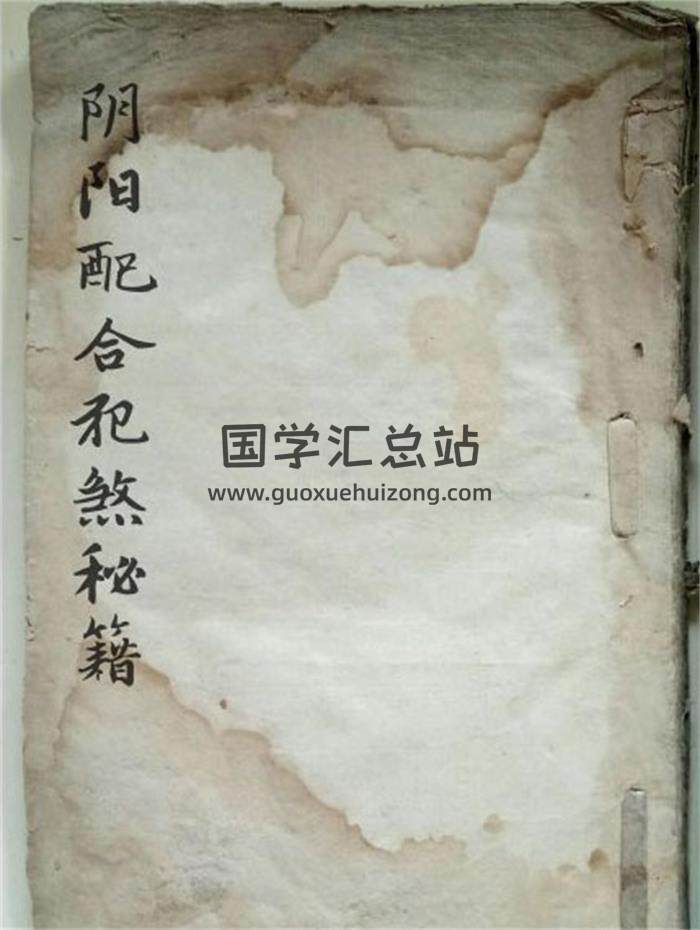 阴阳配合犯煞秘籍
国学汇总站
www.guoxuehuizong.com